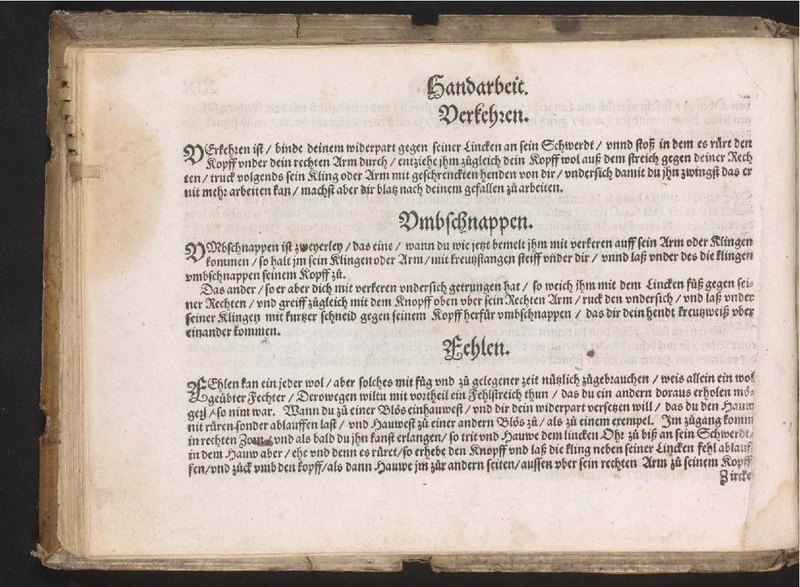 Handarbeit.
Verkehren.
VErkehren ist / binde deinem widerpart gegen seiner Lincken an sein Schwerdt / vnnd stoß in dem es rürt den
Kopff vnder dein rechten Arm durch / entziehe jhm zůgleich dein Kopff wol auß dem streich gegen deiner Rech
ten / truck volgends sein Kling oder Arm mit geschrenckten henden von dir / vndersich damit du jhn zwingst das er
nit mehr arbeiten kan / machst aber dir blatz nach deinem gefallen zů arbeiten.
Vmbschnappen.
VMbschnappen ist zweyerley / das eine / wann du wie jetzt bemelt jhm mit verkeren auff sein Arm oder Klingen
kommen / so halt jm sein Klingen oder Arm / mit kreutzstangen steiff vnder dir / vnnd laß vnder des die klingen
vmbschnappen seinem Kopff zů.
Das ander / so er aber dich mit verkeren vndersich getrungen hat / so weich jhm mit dem Lincken fůß gegen sei-
ner Rechten / vnd greiff zůgleich mit dem Knopff oben vber sein Rechten Arm / ruck den vndersich / vnd laß vnder
seiner Klingen mit kurtzer schneid gegen seinem Kopff herfür vmbschnappen / das dir dein hendt kreutzweiß vber
einander kommen.
Fehlen.
FEhlen kan ein jeder wol / aber solches mit fůg vnd zů gelegener zeit nützlich zůgebrauchen / weis allein ein wol
geübter Fechter / Derowegen wiltu mit vortheil ein Fehlstreich thun / das du ein andern doraus erholen mö-
gest / so nim war. Wann du zů einer Blös einhauwest / vnd dir dein widerpart versetzen will / das du den Hauw
nit rüren sonder ablauffen last / vnd Hauwest zů einer andern Blös zů / als zů einem exempel. Im zůgang komm
in rechten Zorn / vnd als bald du jhn kanst erlangen / so trit vnd Hauwe dem lincken Ohr zů biß an sein Schwerdt /
in dem Hauw aber / ehe vnd denn es rüret / so erhebe den Knopff vnd laß die kling neben seiner Lincken fehl ablauf
fen / vnd zuck vmb den kopff / als dann Hauwe jm zůr andern seiten / aussen vber sein rechten Arm zů seinem Kopff
Zircke